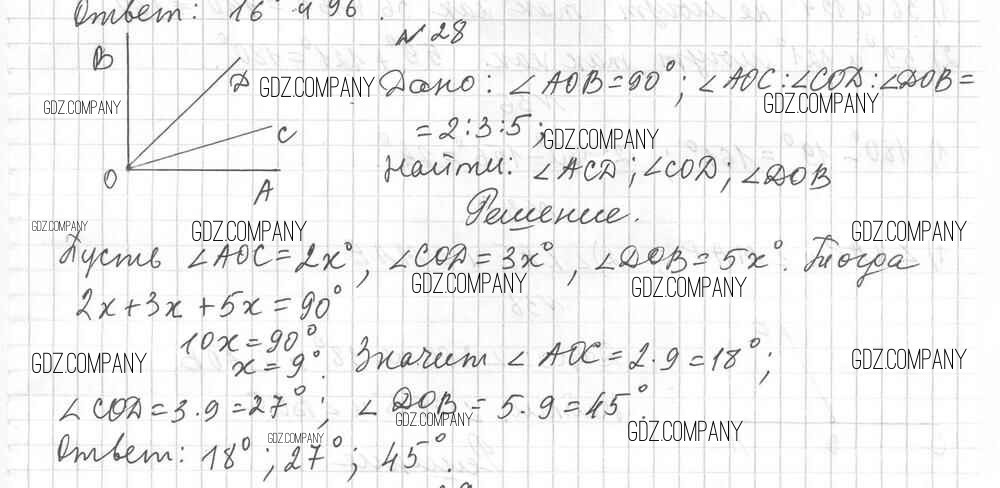 Ответ: 16° и 96°.
№ 28
B
D
C
O
A
Дано: ∠AOB=90°; ∠AOC:∠COD:∠DOB=
=2:3:5;
Найти: ∠ACD; ∠COD; ∠DOB
Решение.
Пусть ∠AOC=2x°, ∠COD=3x°, ∠DOB=5x°. Тогда
2x+3x+5x=90°
10x=90°
x=9°. Значит ∠AOC=2·9=18°;
∠COD=3·9=27°; ∠DOB=5·9=45°.
Ответ: 18°; 27°; 45°.
GDZ.COMPANY
GDZ.COMPANY
GDZ.COMPANY
GDZ.COMPANY
GDZ.COMPANY
GDZ.COMPANY
GDZ.COMPANY
GDZ.COMPANY
GDZ.COMPANY
GDZ.COMPANY
GDZ.COMPANY
GDZ.COMPANY
GDZ.COMPANY
GDZ.COMPANY